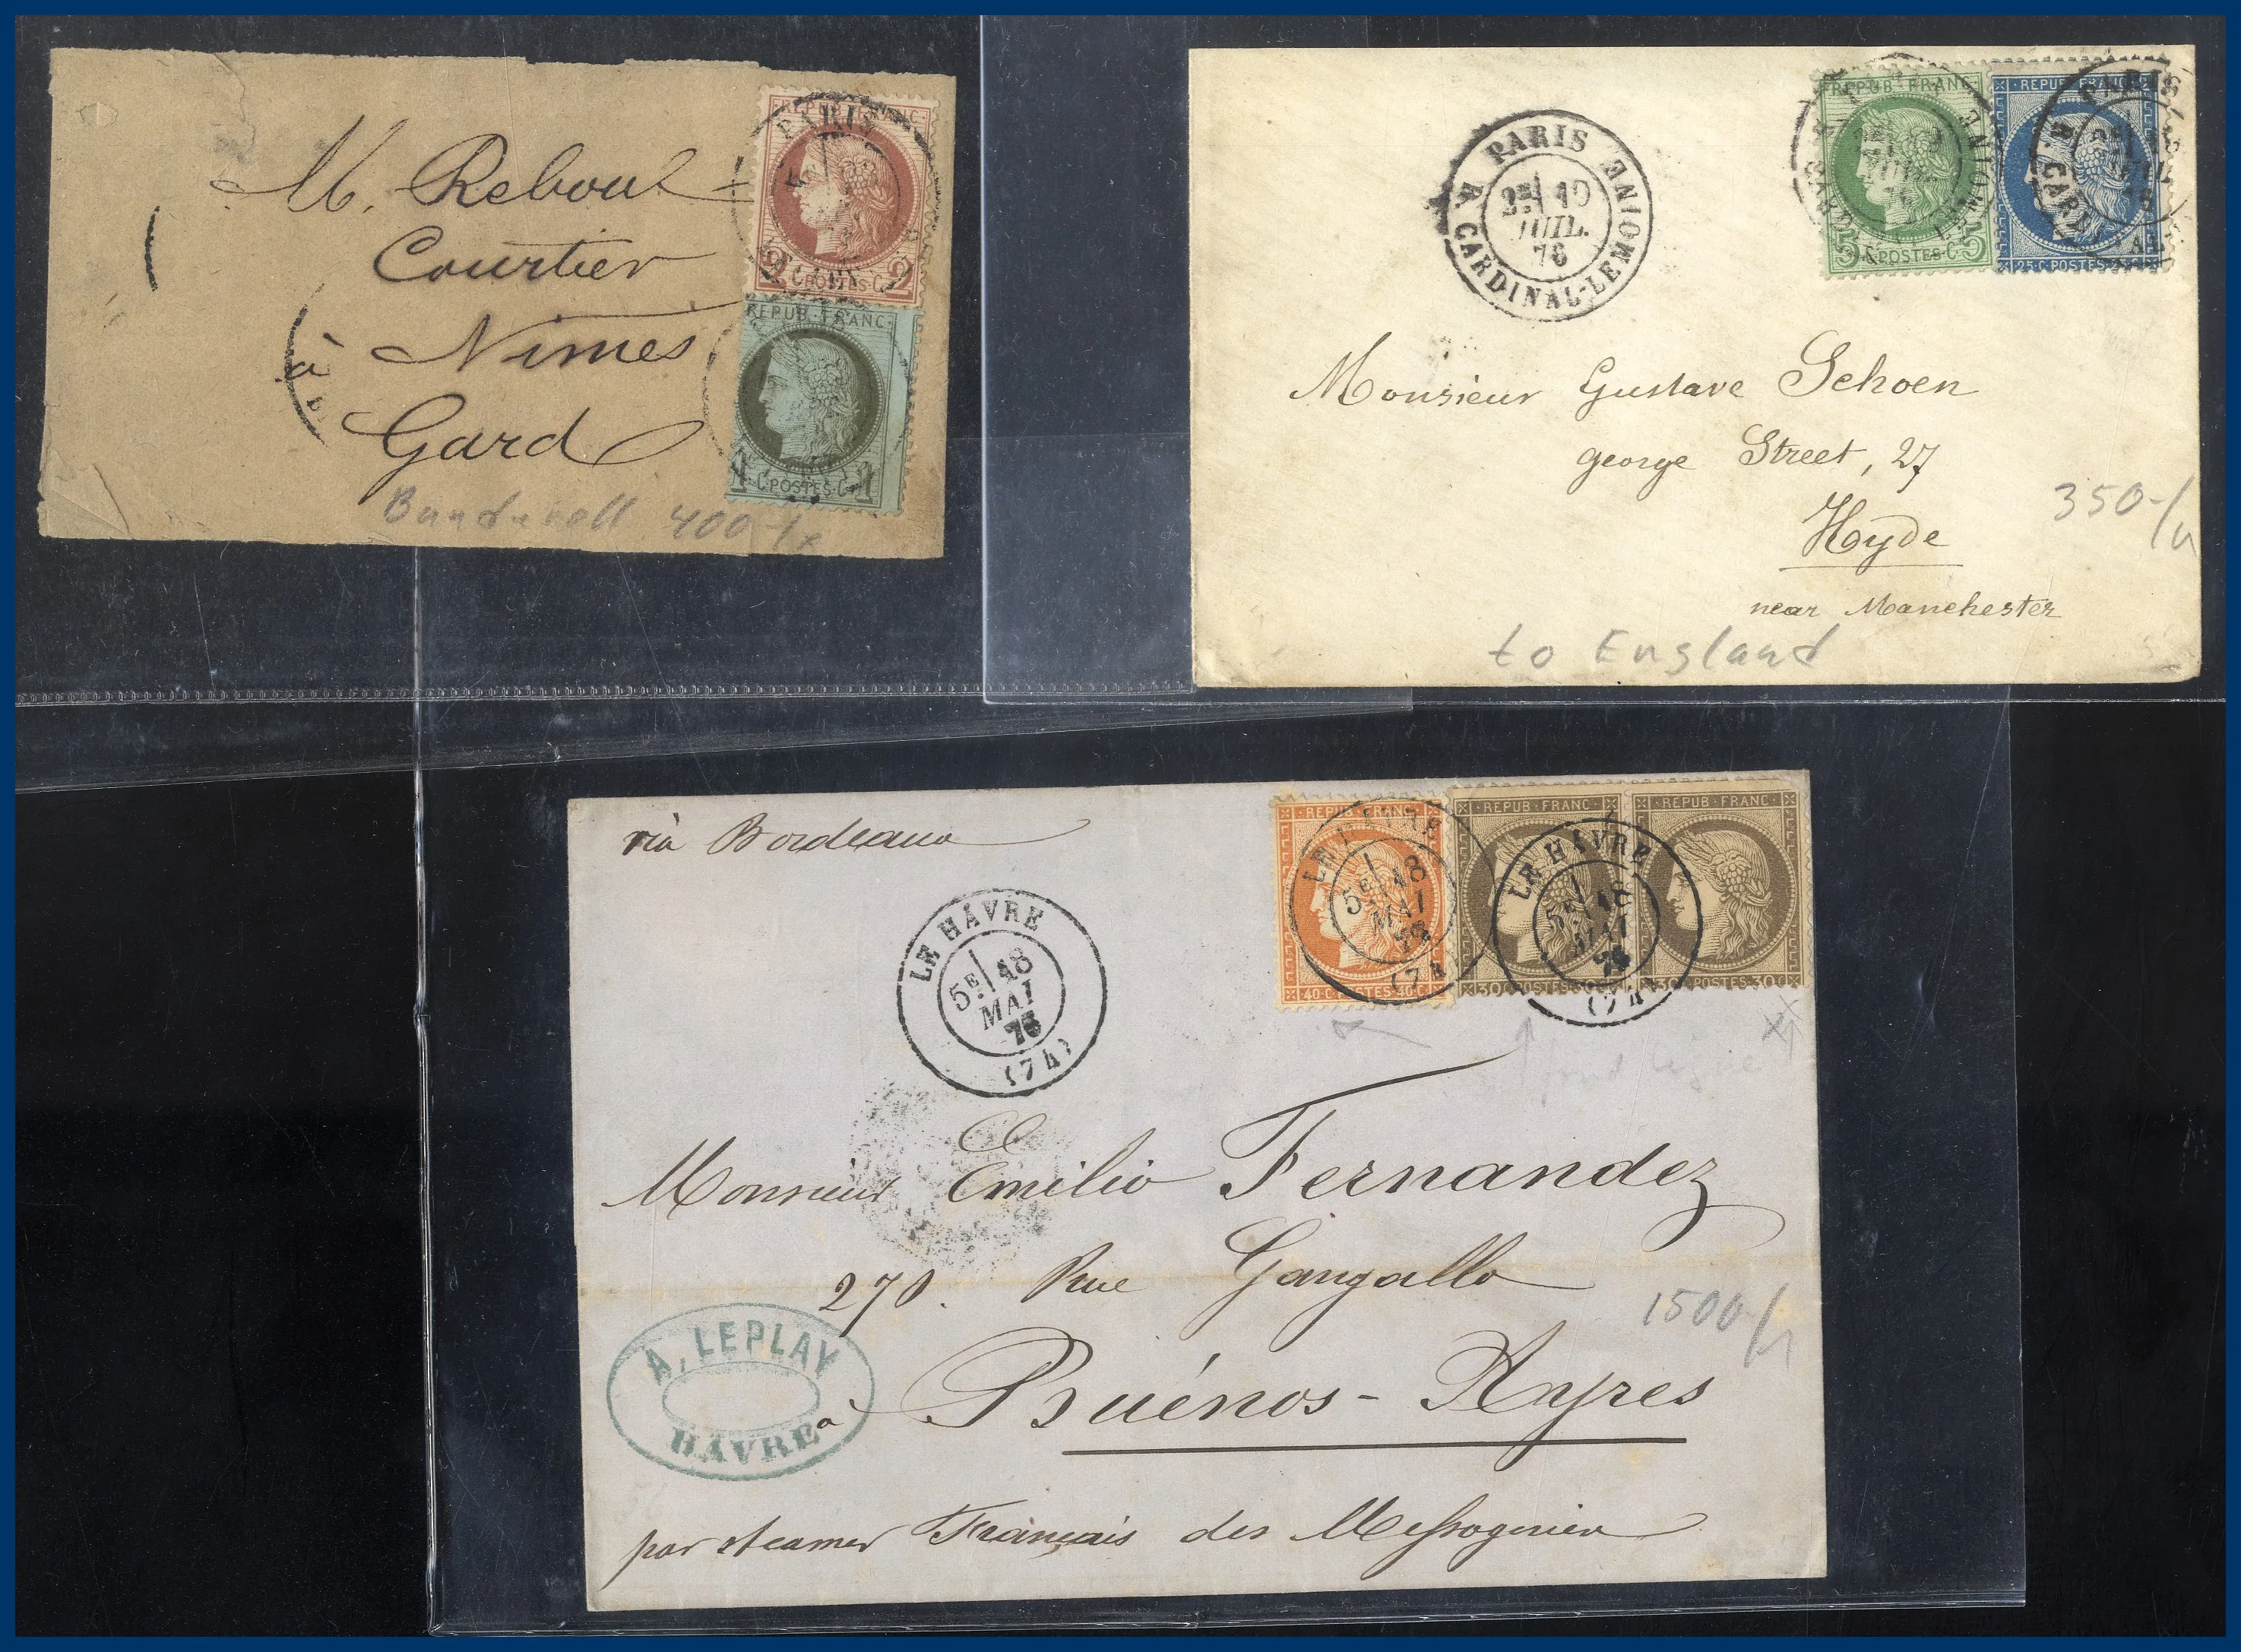 M. Reboul
Courtier
à Nimes
Gard
400
REPUB·FRANC·
PARIS
2 C·POSTES·C 2
REPUB·FRANC·
1 C·POSTES·C 1
PARIS
R. CARDINAL-LEMOINE
2E 19
JUIL.
76
REPUB·FRANC·
5 C·POSTES·C 5
REPUB·FRANC·
25·C·POSTES·25·C
PARIS
Monsieur Gustave Schoen
george Street, 27
Hyde
near Manchester
350-/
to England
via Bordeaux
LE HAVRE
5E 18
MAI
75
(74)
REPUB·FRANC·
40·C·POSTES·40·C
LE HAVRE
5E 18
MAI
(74
REPUB·FRANC·
30·C·POSTES·30·C
REPUB·FRANC·
30·C·POSTES·30·C
LE HAVRE
5E 18
MAI
(74)
Monsieur Emilio Fernandez
270. Rue Gangallo
à Buénos-Ayres
1500-/
A. LEPLAY
HAVRE
par steamer Français des Messageries